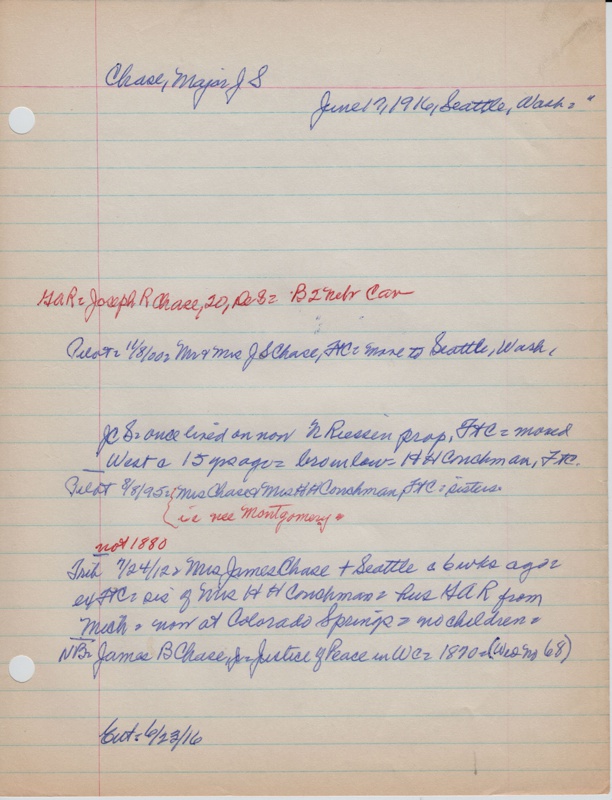 Chase, Major J S
June 17, 1916, Seattle, Wash = "
GAR = Joseph R Chase, 20, De S = B 2 Nebr Cav
Pilot = 11/8/00 = Mr & Mrs J S Chase, FtC = move to Seattle, Wash.
JC S = once lived on now N Riessen prop, FtC = moved
West c 15 yrs ago = bro in law = H H Couchman, FtC.
Pilot 8/8/95 = Mrs Chase & Mrs H H Couchman, FtC = sisters
ie nee Montgomery =
not 1880
Trib 7/24/12 = Mrs James Chase + Seattle c 6 wks ago =
ex FtC = sis of Mrs H H Couchman = hus GAR from
Mich = now at Colorado Springs = no children =
NB = James B Chase, Jr = Justice of Peace in WC = 1870 = (Wes No 68)
Ent = 6/23/16